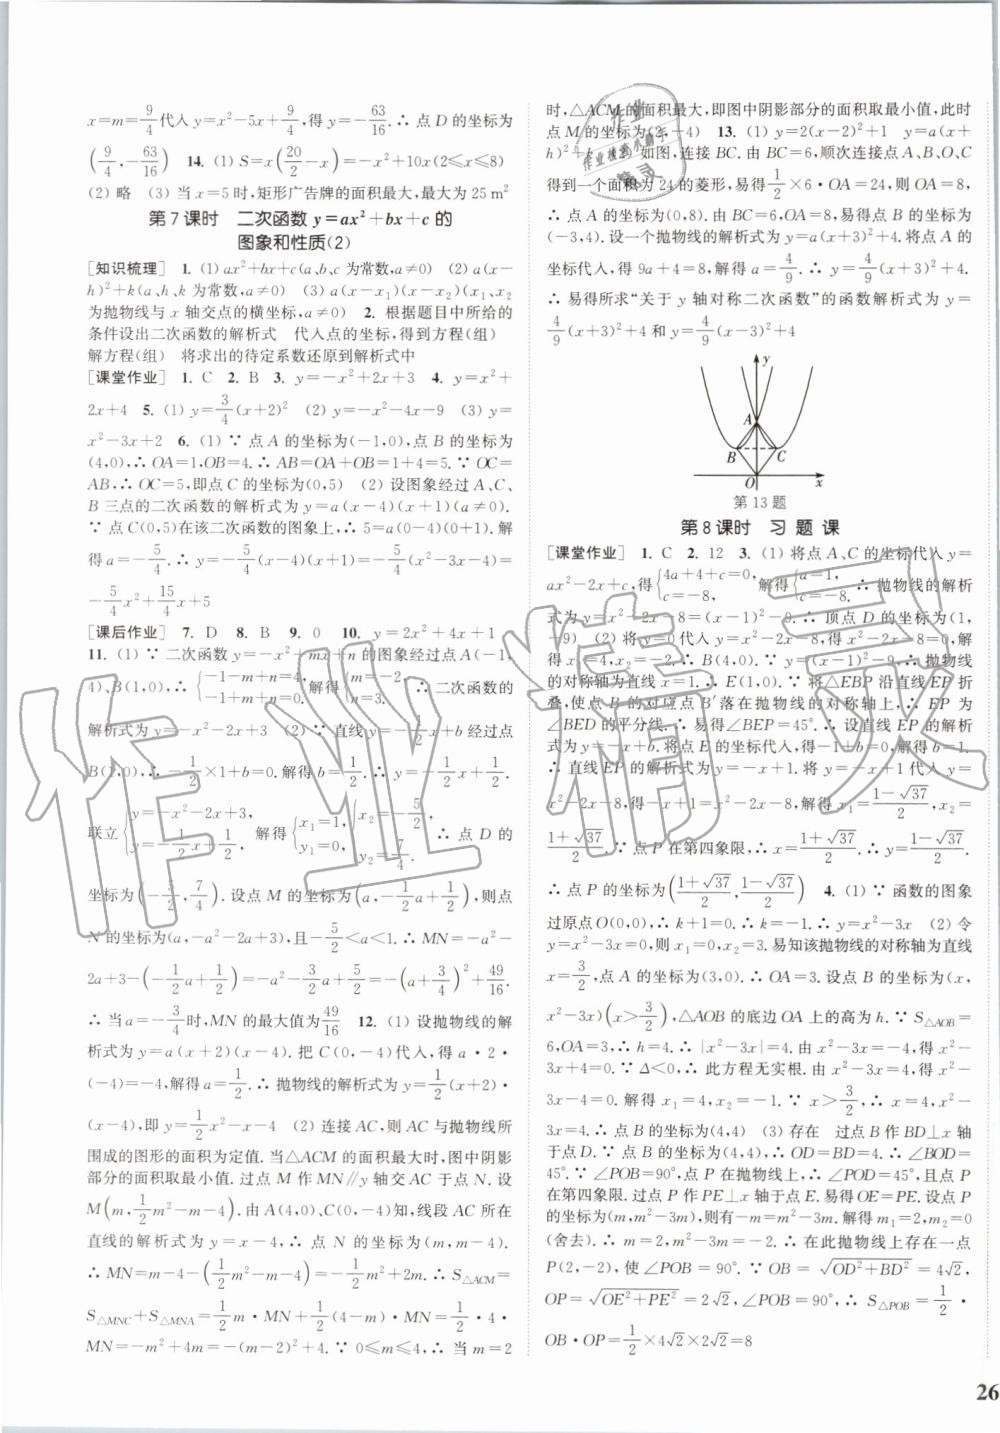 x=m=9/4代入 y=x²-5x+9/4,得 y=-63/16.∴ 点 D 的坐标为
(9/4,-63/16) 14. (1) S=x(20/2-x)=-x²+10x(2≤x≤8)
(2) 略 (3) 当 x=5时,矩形广告牌的面积最大,最大为25 m²
第7课时 二次函数 y=ax²+bx+c 的
图象和性质(2)
[知识梳理] 1. (1) ax²+bx+c(a、b、c 为常数,a≠0) (2) a(x-
h)²+k(a、h、k 为常数,a≠0) (3) a(x-x₁)(x-x₂)(x₁、x₂
为抛物线与 x 轴交点的横坐标,a≠0) 2. 根据题目中所给的
条件设出二次函数的解析式 代入点的坐标,得到方程(组)
解方程(组) 将求出的待定系数还原到解析式中
[课堂作业] 1. C 2. B 3. y=-x²+2x+3 4. y=x²+
2x+4 5. (1) y=3/4(x+2)² (2) y=-x²-4x-9 (3) y=
x²-3x+2 6. (1) ∵ 点 A 的坐标为(-1,0),点 B 的坐标为
(4,0),∴ OA=1,OB=4.∴ AB=OA+OB=1+4=5.∵ OC=
AB,∴ OC=5,即点 C 的坐标为(0,5) (2) 设图象经过 A、C、
B 三点的二次函数的解析式为 y=a(x-4)(x+1)(a≠0).
∵ 点 C(0,5)在该二次函数的图象上,∴ 5=a(0-4)(0+1).解
得 a=-5/4.∴ y=-5/4(x-4)(x+1)=-5/4(x²-3x-4)=
-5/4x²+15/4x+5
[课后作业] 7. D 8. B 9. 0 10. y=2x²+4x+1
11. (1) ∵ 二次函数 y=-x²+mx+n 的图象经过点 A(-1,
4)、B(1,0),∴ {-1-m+n=4, -1+m+n=0. 解得{m=-2, n=3. ∴ 二次函数的
解析式为 y=-x²-2x+3 (2) ∵ 直线 y=-1/2x+b 经过点
B(1,0),∴ -1/2×1+b=0.解得 b=1/2.∴ y=-1/2x+1/2.
联立{y=-x²-2x+3, y=-1/2x+1/2. 解得{x₁=1, y₁=0; {x₂=-5/2, y₂=7/4. ∴ 点 D 的
坐标为(-5/2,7/4).设点 M 的坐标为(a,-1/2a+1/2),则点
N 的坐标为(a,-a²-2a+3),且-5/2<a<1.∴ MN=-a²-
2a+3-(-1/2a+1/2)=-a²-3/2a+5/2=-(a+3/4)²+49/16.
∴ 当 a=-3/4时,MN 的最大值为49/16 12. (1) 设抛物线的解
析式为 y=a(x+2)(x-4).把 C(0,-4)代入,得 a·2·
(-4)=-4,解得 a=1/2.∴ 抛物线的解析式为 y=1/2(x+2)·
(x-4),即 y=1/2x²-x-4 (2) 连接 AC,则 AC 与抛物线所
围成的图形的面积为定值.当△ACM 的面积最大时,图中阴影
部分的面积取最小值.过点 M 作 MN∥y 轴交 AC 于点 N.设
M(m,1/2m²-m-4).由 A(4,0)、C(0,-4)知,线段 AC 所在
直线的解析式为 y=x-4,∴ 点 N 的坐标为(m,m-4).
∴ MN=m-4-(1/2m²-m-4)=-1/2m²+2m.∴ S△ACM=
S△MNC+S△MNA=1/2m·MN+1/2(4-m)·MN=1/2·4·
MN=-m²+4m=-(m-2)²+4.∵ 0≤m≤4,∴ 当 m=2
时,△ACM 的面积最大,即图中阴影部分的面积取最小值,此时
点 M 的坐标为(2,-4) 13. (1) y=2(x-2)²+1 y=a(x+
h)²+k (2) 如图,连接 BC.由 BC=6,顺次连接点 A、B、O、C
得到一个面积为 24 的菱形,易得1/2×6·OA=24,则 OA=8,
∴ 点 A 的坐标为(0,8).由 BC=6,OA=8,易得点 B 的坐标为
(-3,4).设一个抛物线的解析式为 y=a(x+3)²+4.将点 A 的
坐标代入,得 9a+4=8,解得 a=4/9.∴ y=4/9(x+3)²+4.
∴ 易得所求“关于 y 轴对称二次函数”的函数解析式为 y=
4/9(x+3)²+4 和 y=4/9(x-3)²+4
y
A
B C
O x
第13题
第8课时 习题课
[课堂作业] 1. C 2. 12 3. (1) 将点 A、C 的坐标代入 y=
ax²-2x+c,得{4a+4+c=0, c=-8, 解得{a=1, c=-8. ∴ 抛物线的解析
式为 y=x²-2x-8=(x-1)²-9.∴ 顶点 D 的坐标为(1,
-9) (2) 将 y=0代入 y=x²-2x-8,得 x²-2x-8=0.解
得 x₁=4,x₂=-2.∴ B(4,0).∵ y=(x-1)²-9,∴ 抛物线
的对称轴为直线 x=1.∴ E(1,0).∵ 将△EBP 沿直线 EP 折
叠,使点 B 的对应点 B′落在抛物线的对称轴上,∴ EP 为
∠BED 的平分线.∴ 易得∠BEP=45°.∴ 设直线 EP 的解析
式为 y=-x+b.将点 E 的坐标代入,得-1+b=0,解得 b=1.
∴ 直线 EP 的解析式为 y=-x+1.将 y=-x+1代入 y=
x²-2x-8,得-x+1=x²-2x-8,解得 x₁=(1-√37)/2,x₂=
(1+√37)/2.∵ 点 P 在第四象限,∴ x=(1+√37)/2.∴ y=(1-√37)/2.
∴ 点 P 的坐标为((1+√37)/2,(1-√37)/2) 4. (1) ∵ 函数的图象
过原点 O(0,0),∴ k+1=0.∴ k=-1.∴ y=x²-3x (2) 令
y=x²-3x=0,则 x₁=0,x₂=3.易知该抛物线的对称轴为直线
x=3/2,点 A 的坐标为(3,0).∴ OA=3.设点 B 的坐标为(x,
x²-3x)(x>3/2),△AOB 的底边 OA 上的高为 h.∵ S△AOB=
6,OA=3,∴ h=4.∴ |x²-3x|=4.由 x²-3x=-4,得 x²-
3x+4=0.∵ Δ<0,∴ 此方程无实根.由 x²-3x=4,得 x²-
3x-4=0.解得 x₁=4,x₂=-1.∵ x>3/2,∴ x=4,x²-
3x=4.∴ 点 B 的坐标为(4,4) (3) 存在 过点 B 作 BD⊥x 轴
于点 D.∵ 点 B 的坐标为(4,4),∴ OD=BD=4.∴ ∠BOD=
45°.∵ ∠POB=90°,点 P 在抛物线上,∴ ∠POD=45°,且点 P
在第四象限.过点 P 作 PE⊥x 轴于点 E.易得 OE=PE.设点 P
的坐标为(m,m²-3m),则有-m=m²-3m.解得 m₁=2,m₂=0
(舍去).∴ m=2,m²-3m=-2.∴ 在此抛物线上存在一点
P(2,-2),使∠POB=90°.∵ OB=√(OD²+BD²)=4√2,
OP=√(OE²+PE²)=2√2,∠POB=90°,∴ S△POB=1/2·
OB·OP=1/2×4√2×2√2=8
26
作业精灵